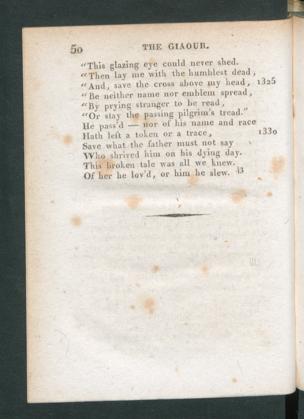 50 THE GIAOUR.
"This glazing eye could never shed.
"Then lay me with the humblest dead,
"And, save the cross above my head, 1325
"Be neither name nor emblem spread,
"By prying stranger to be read,
"Or stay the passing pilgrim's tread."
He pass'd — nor of his name and race
Hath left a token or a trace, 1330
Save what the father must not say
Who shrived him on his dying day.
This broken tale was all we knew.
Of her he lov'd, or him he slew.